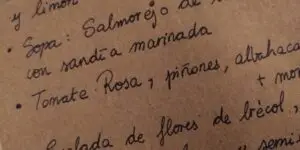 y limón
• Sopa: Salmorejo de
con sandía marinada
• Tomate Rosa, piñones, albahaca
+
de flores de brécol,